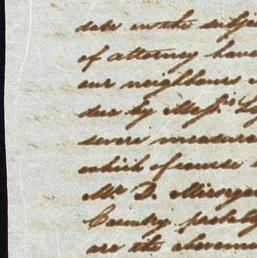 date on the subje
of attorney have
our neighbours
due by Messrs
severe measure
which of course
Mr D.
Country probably
are the abovemen